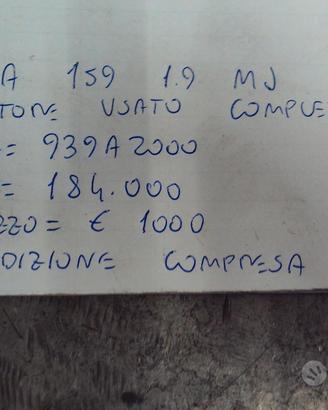 A 159 1.9 MJ
TONE USATO COMPLE
= 939A2000
= 184.000
ZZO = € 1000
DIZIONE COMPRESA